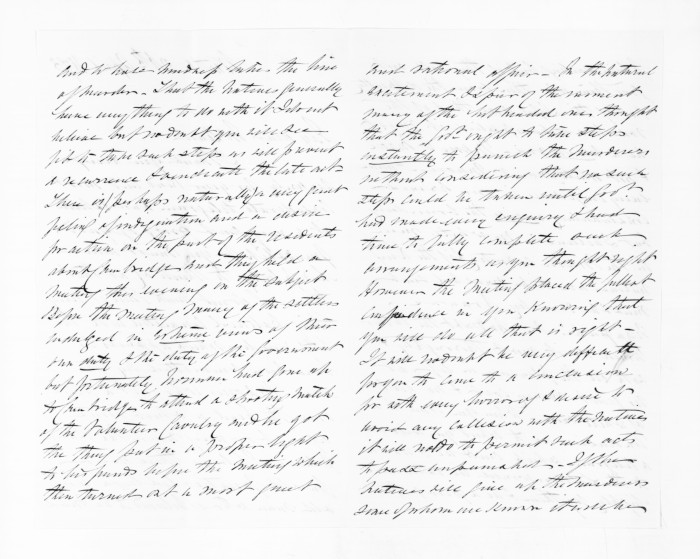 and to have
of murder. That the Natives generally
have anything to do with it I do not
believe but no doubt you will see
fit to take such steps as will prevent
a recurrence & vindicate the late acts
There is (perhaps naturally) a very great
feeling of indignation and a desire
for action on the part of the residents
about Cambridge and they held a
meeting this evening on the subject
Before the meeting many of the settlers
indulged in extreme views of their
own duty & the duty of the government
but fortunately had gone up
to Cambridge to attend a shooting match
of the Volunteer Cavalry and he got
the thing put in a proper light
to his friends before the meeting which
then turned out a most quiet
and rational affair - In the natural
excitement & of the moment
many of the hot headed ones thought
that the Govt ought to take steps
instantly to punish the murderers
without considering that no such
steps could be taken until Govt
had made every enquiry & had
time to fully complete such
arrangements as you thought right
However the Meeting placed the fullest
confidence in you knowing that
you will do all that is right -
It will no doubt be very difficult
for you to come to a conclusion
for with every & desire to
avoid any collision with the Natives
it will not do to permit such acts
to pass unpunished - If the
Natives will give up the murderers
some of whom are known it will be